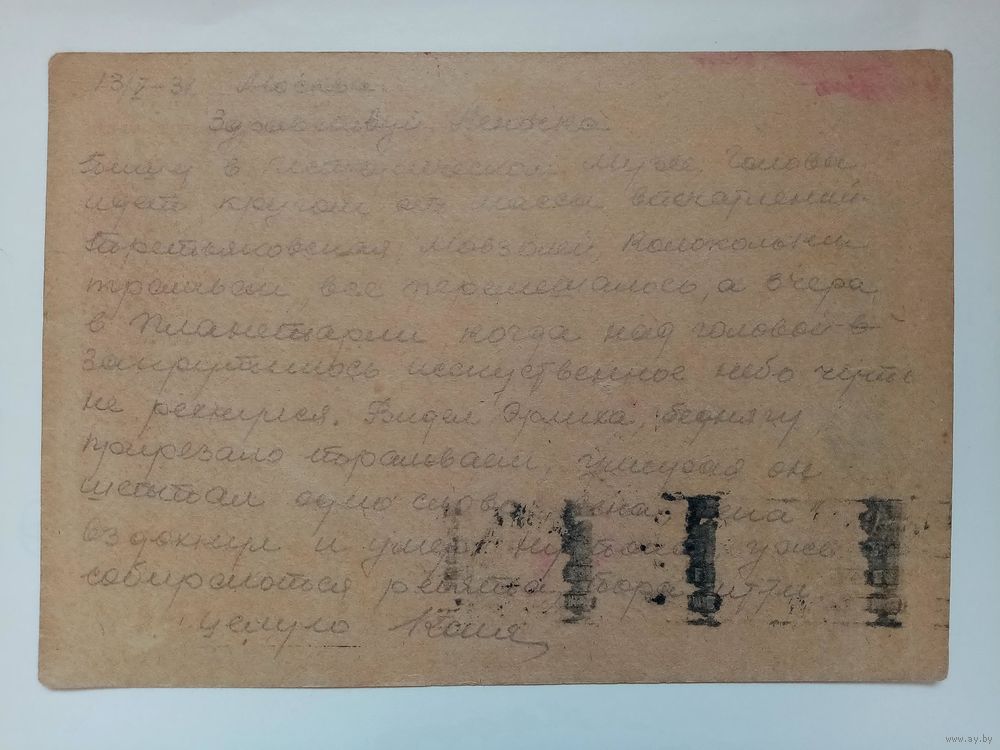 13/I-31 Москва.
Здравствуй Леночка
Пишу в Политехническом Музее. Голова
идет кругом от массы впечатлений.
Третьяковская Мавзолей, Колокольни
трамваи, все перемешалось, а вчера
в Планетарии когда над головой
закрутилось исскуственное небо чуть
не рехнулся. Видел Эрлиха, беднягу
прирезало трамваем. Умирая он
шептал одно слово
вздохнул и умер. Ну уже
собираются ребята, пора идти.
целую Коля
www.ay.by